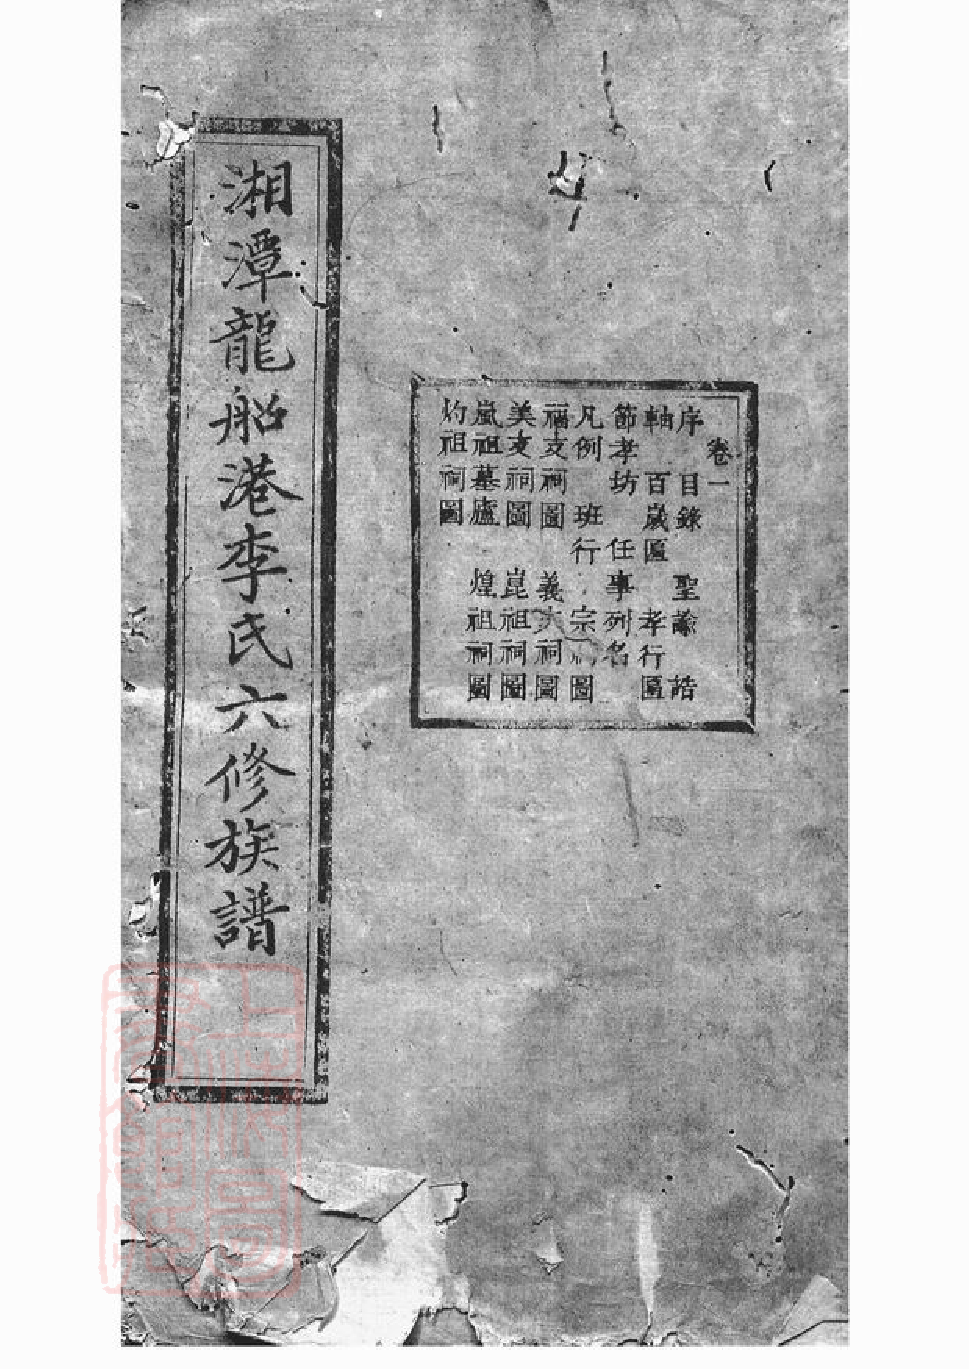 卷一
序 目錄 聖諭 誥
軸 百歲匾 孝行匾
節孝坊 任事列名
凡例 班行 宗祠圖
福支祠圖 義六祠圖
美支祠圖 崑祖祠圖
嵐祖墓廬 煌祖祠圖
灼祖祠圖
湘潭龍船港李氏六修族譜